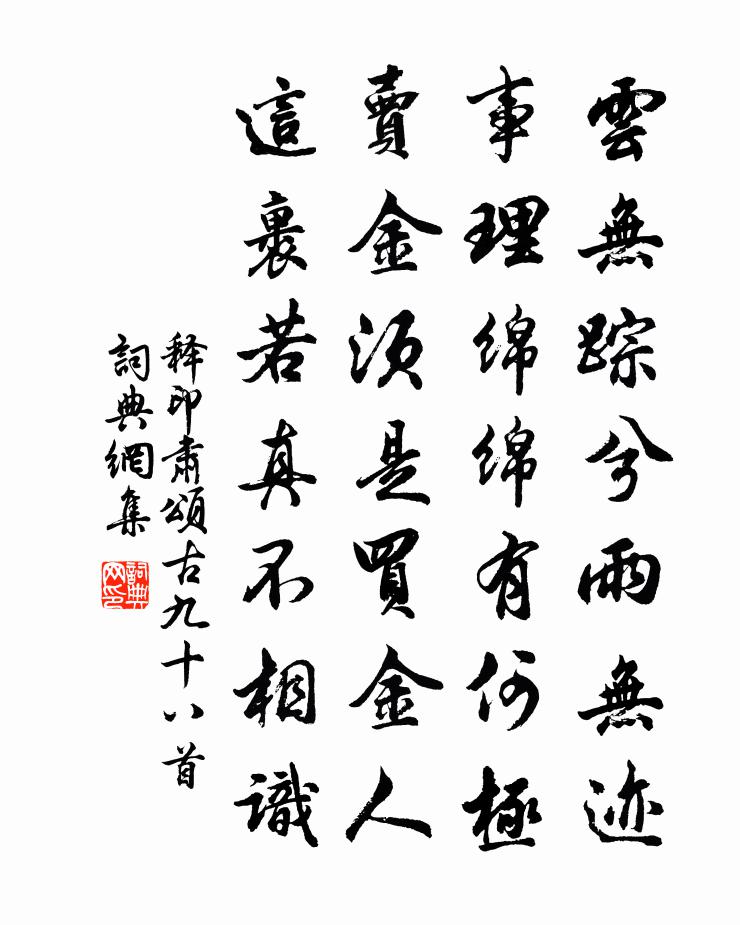 雲無踪兮雨無迹
事理綿綿有何極
賣金須是買金人
這裏若真不相識
释印肅頌古九十八首
詞典網集
詞典网印